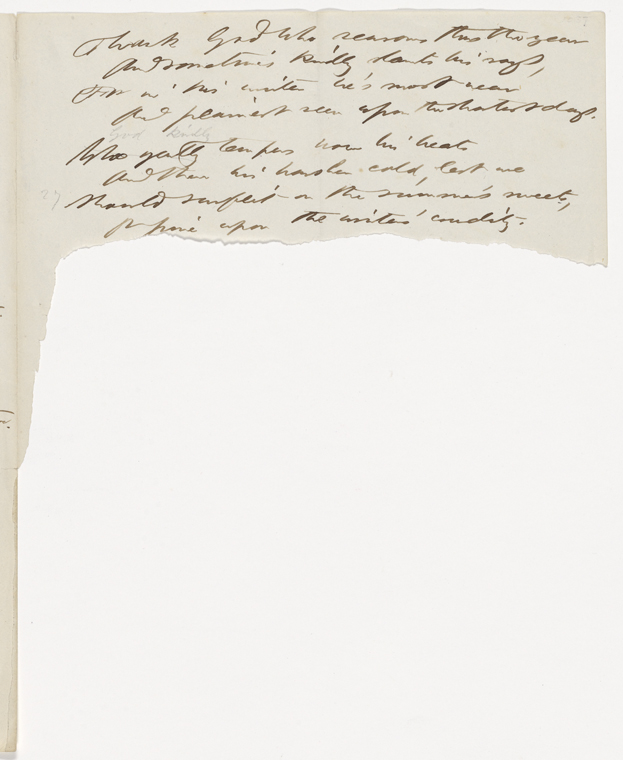 Thank God who seasons thus the year
And sometimes kindly slants his rays,
For in his winter he's most near
And plainest seen upon the shortest days.
God kindly
Who gently tempers now his heats
And then his harsher cold, lest we
Should surfeit on the summer's sweets,
Or pine upon the winter's crudity.